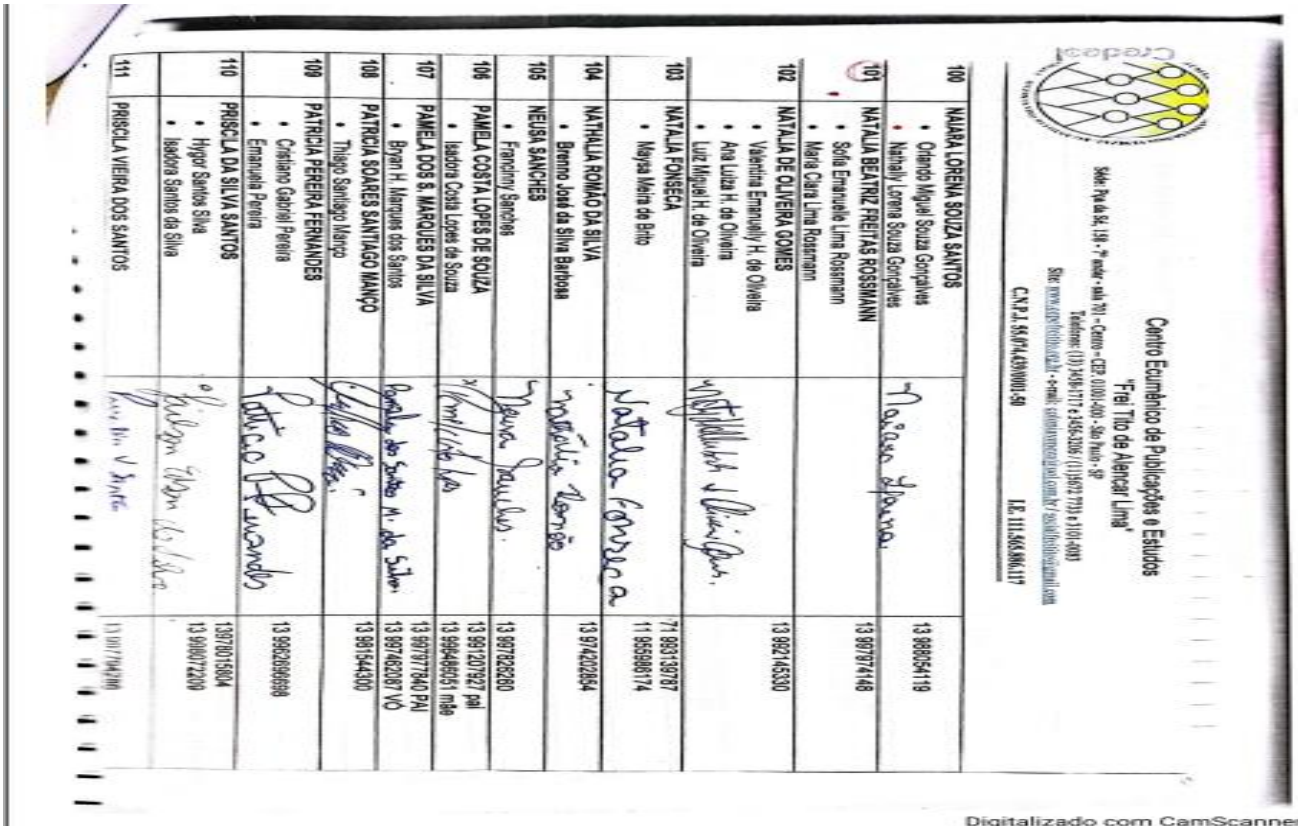 Centro Ecumênico de Publicações e Estudos
"Frei Tito de Alencar Lima"
Sede: Pça da Sé, 158 - 7º andar - sala 701 - Centro - CEP. 01001-000 - São Paulo - SP
Telefones: (13) 3456-1717 e 3456-3206 / (11)3672 7733 e 3101-0083
C.N.P.J. 55.074.439/0001-50 I.E. 111.565.886.117
100 NAIARA LORENA SOUZA SANTOS
• Orlando Miguel Souza Gonçalves
• Nathally Lorena Souza Gonçalves
Naiara Lorena
13 988054119
101 NATALIA BEATRIZ FREITAS ROSSMANN
• Sofia Emanuelle Lima Rossmann
• Maria Clara Lima Rossmann
13 997974148
102 NATALIA DE OLIVEIRA GOMES
• Valentina Emanuelly H. de Oliveira
• Ana Luiza H. de Oliveira
• Luiz Miguel H. de Oliveira
13 992145330
103 NATALIA FONSECA
• Maysa Meira de Brito
Natalia Fonseca
71 993139787
11 955988174
104 NATHALIA ROMÃO DA SILVA
• Brenno José da Silva Barbosa
Nathália Romão
13 974202854
105 NEUSA SANCHES
• Francinny Sanches
Neusa Sanches.
13 997828280
106 PAMELA COSTA LOPES DE SOUZA
• Isadora Costa Lopes de Souza
13 991207927 pai
13 996486051 mãe
107 PAMELA DOS S. MARQUES DA SILVA
• Bryan H. Marques dos Santos
Pamela dos Santos M. da Silva
13 997977840 PAI
13 997462087 VÓ
108 PATRICIA SOARES SANTIAGO MANÇO
• Thiago Santiago Manço
13 981544300
109 PATRICIA PEREIRA FERNANDES
• Cristiano Gabriel Pereira
• Emanuela Pereira
Patricia P Fernandes
13 9962696698
110 PRISCLA DA SILVA SANTOS
• Hygor Santos Silva
• Isadora Santos da Silva
13978015804
13 998072209
111 PRISCILA VIEIRA DOS SANTOS
Digitalizado com CamScanner